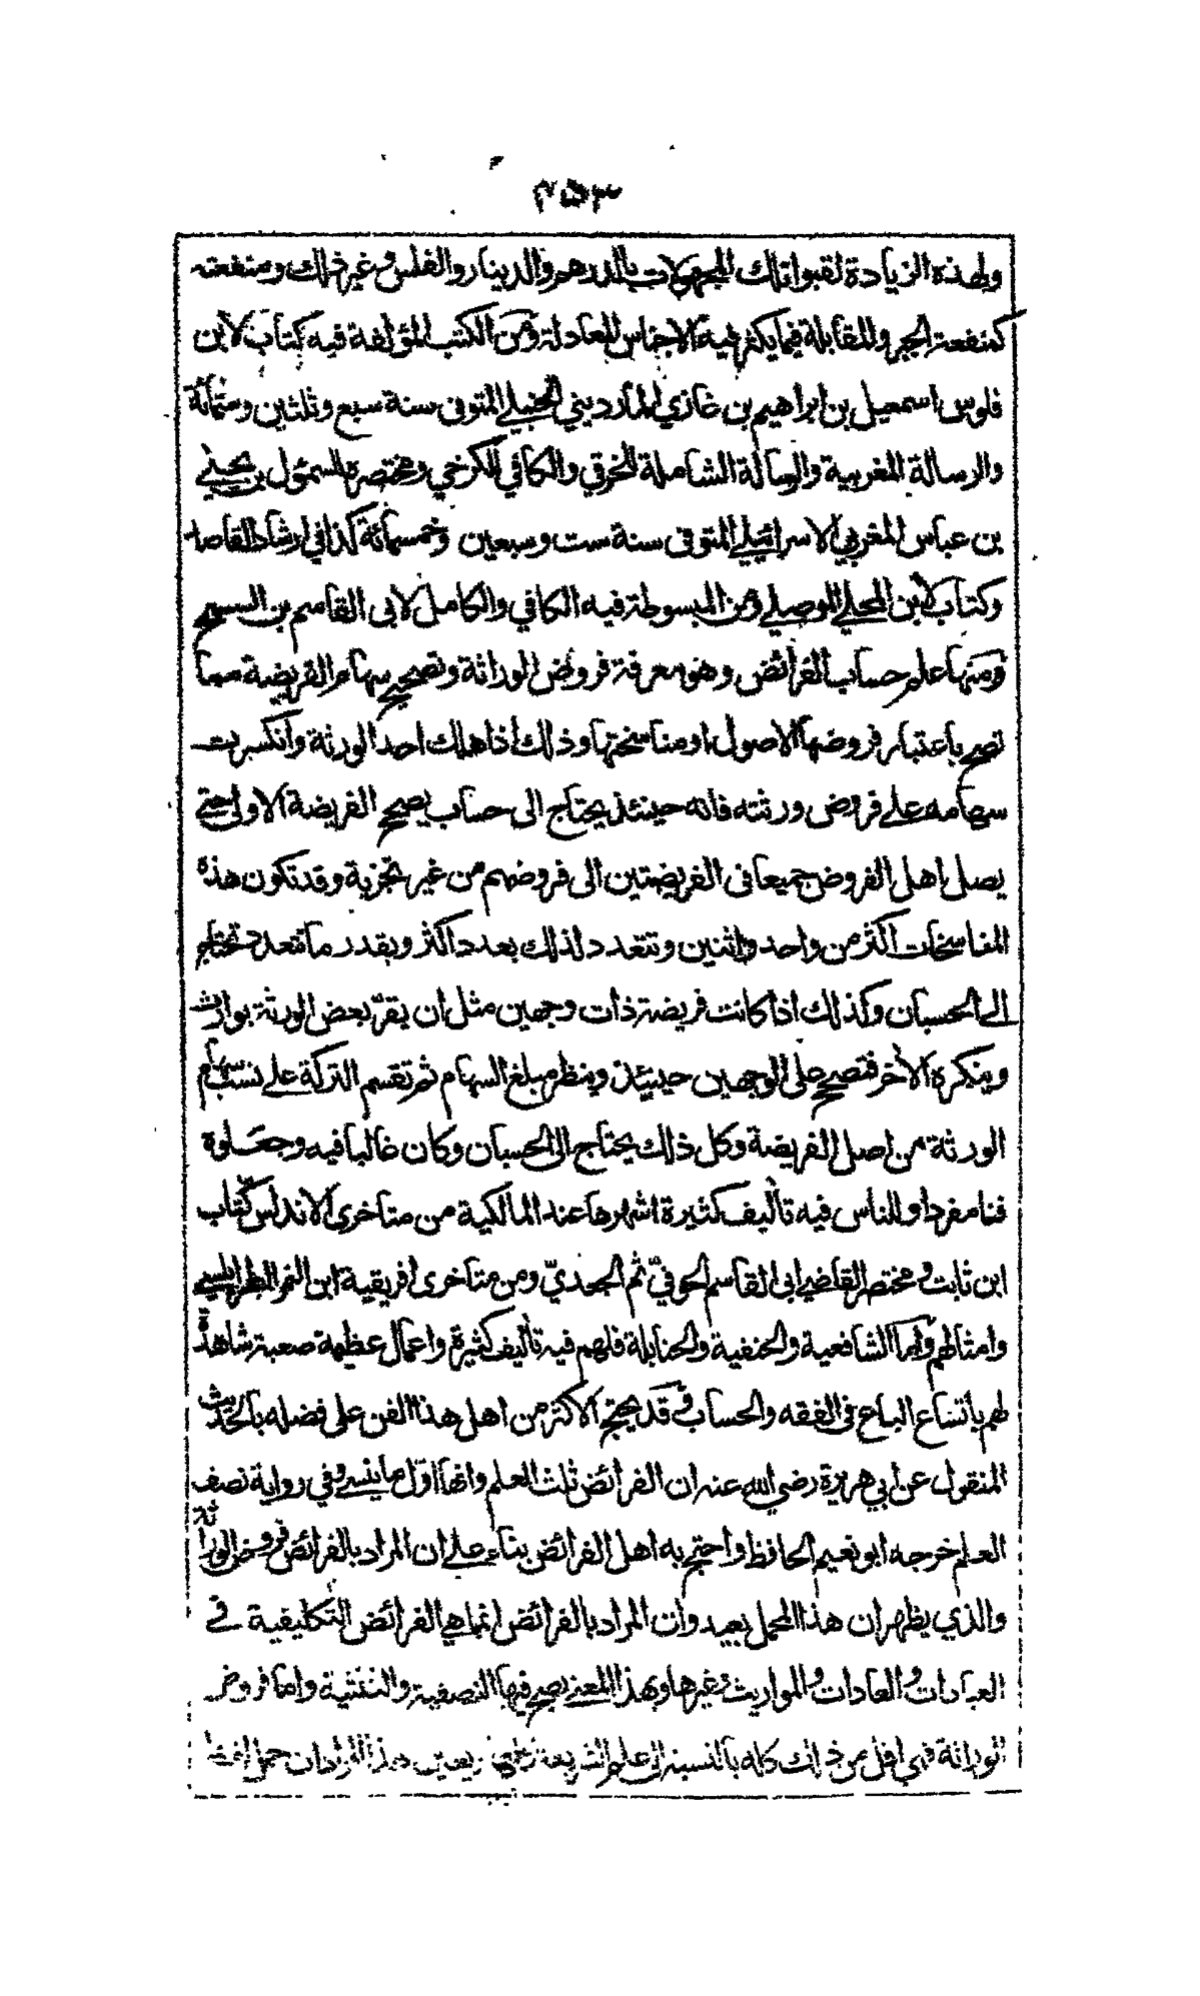 ۴۵۳
ولهذه الزيادة لقبوا تلك المجهولات بالدرهم والدينار والفلس وغير ذلك ومنفعته
كمنفعة الجبر والمقابلة فيما يكثر فيه الاجناس المعادلة ومن الكتب المؤلفة فيه كتاب لابن
فلوس اسمعيل بن ابراهيم بن غازي المارديني الحنبلي المتوفى سنة سبع وثلثين وستمائة
والرسالة المغربية والرسالة الشاملة للخرقي والكافي للكرخي ومختصره للسمئول بن يحيى
بن عباس المغربي الاسرائيلي المتوفى سنة ست وسبعين وخمسمائة كذا في ارشاد القاصد
وكتاب لابن المحلي الموصلي ومن المبسوطة فيه الكافي والكامل لابي القاسم بن السمح
ومنها علم حساب الفرائض وهو معرفة فروض الوراثة وتصحيح سهام الفريضة مما
تصح باعتبار فروضها الاصول او مناسختها وذلك اذا هلك احد الورثة وانكسرت
سهامه على فروض ورثته فانه حينئذ يحتاج الى حساب يصحح الفريضة الاولى حتى
يصل اهل الفروض جميعا في الفريضتين الى فروضهم من غير تجزية وقد تكون هذه
المناسخات اكثر من واحد واثنين وتتعدد لذلك بعدد اكثر وبقدر ما تتعدد تحتاج
الى الحسبان وكذلك اذا كانت فريضة ذات وجهين مثل ان يقر بعض الورثة بوارث
وينكره الآخر فتصحح على الوجهين حينئذ وينظر مبلغ السهام ثم تقسم التركة على نسب سهام
الورثة من اصل الفريضة وكل ذلك يحتاج الى الحسبان وكان غالبا فيه وجعلوه
فنا مفردا وللناس فيه تأليف كثيرة اشهرها عند المالكية من متاخرى الاندلس كتاب
ابن ثابت ومختصر القاضي ابي القاسم الحوفيّ ثم الجعديّ ومن متاخرى افريقية ابن النمر الطرابلسي
وامثالهم واما الشافعية والحنفية والحنابلة فلهم فيه تأليف كثيرة واعمال عظيمة صعبة شاهدة
لهم باتساع الباع في الفقه والحساب وقد يحتج الاكثر من اهل هذا الفن على فضله بالحديث
المنقول عن ابي هريرة رضي الله عنه ان الفرائض ثلث العلم وانها اول ما ينسى وفي رواية نصف
العلم خرجه ابو نعيم الحافظ واحتج به اهل الفرائض بناء على ان المراد بالفرائض فروض الوراثة
والذي يظهر ان هذا المحمل بعيد وان المراد بالفرائض انما هي الفرائض التكليفية في
العبادات والعادات والمواريث وغيرها وبهذا المعنى يصح فيها النصفية والثلثية واما فروض
الوراثة فهي اقل من ذلك كله بالنسبة الى علم الشريعة